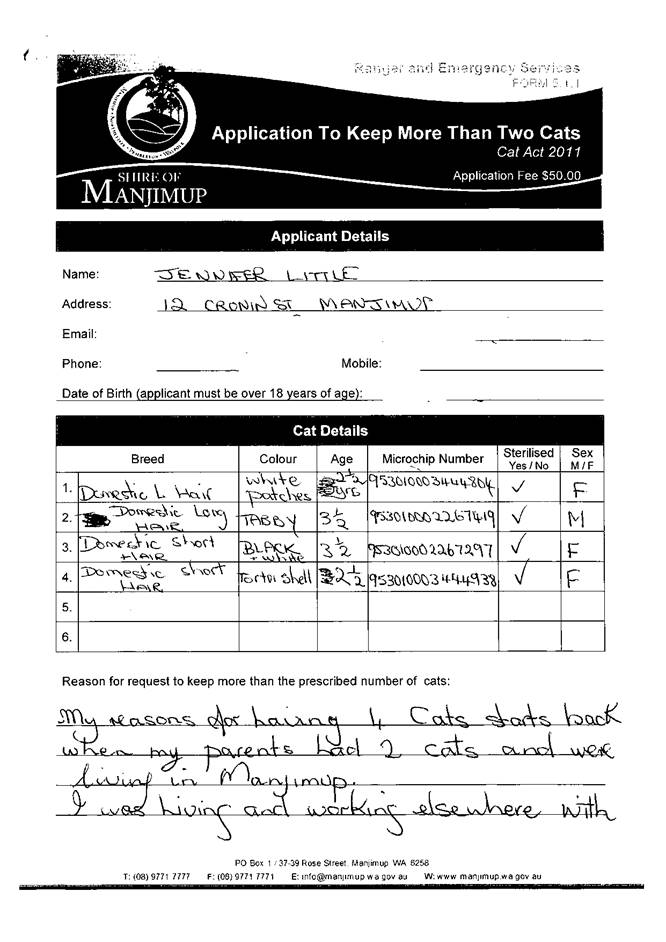 Ranger and Emergency Services
FORM 5.1.1
Application To Keep More Than Two Cats
Cat Act 2011
Application Fee $50.00
SHIRE OF
MANJIMUP
Applicant Details
Name: JENNIFER LITTLE
Address: 12 CRONIN ST MANJIMUP
Email:
Phone: Mobile:
Date of Birth (applicant must be over 18 years of age):
Cat Details
Breed Colour Age Microchip Number Sterilised Yes / No Sex M / F
1. Domestic L Hair white patches 2½ yrs 953010003444804 ✓ F
2. Domestic Long HAIR TABBY 3½ 953010002267419 ✓ M
3. Domestic Short HAIR BLACK + white 3½ 953010002267297 ✓ F
4. Domestic short HAIR Tortoi Shell 2½ 953010003444938 ✓ F
5.
6.
Reason for request to keep more than the prescribed number of cats:
My reasons for having 4 Cats starts back
when my parents had 2 cats and were
living in Manjimup.
I was living and working elsewhere with
PO Box 1 / 37-39 Rose Street, Manjimup WA 6258
T: (08) 9771 7777 F: (08) 9771 7771 E: info@manjimup.wa.gov.au W: www.manjimup.wa.gov.au